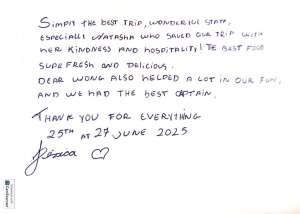 SIMPLY THE BEST TRIP, WONDERFUL STAFF,
ESPECIALLY NATASHA WHO SAVED OUR TRIP WITH
HER KINDNESS AND HOSPITALITY! THE BEST FOOD
SUPERFRESH AND DELICIOUS.
DEAR WONG ALSO HELPED A LOT IN OUR FUN,
AND WE HAD THE BEST CAPTAIN.
THANK YOU FOR EVERYTHING
25TH AT 27 JUNE 2025
Jéssica
CamScanner